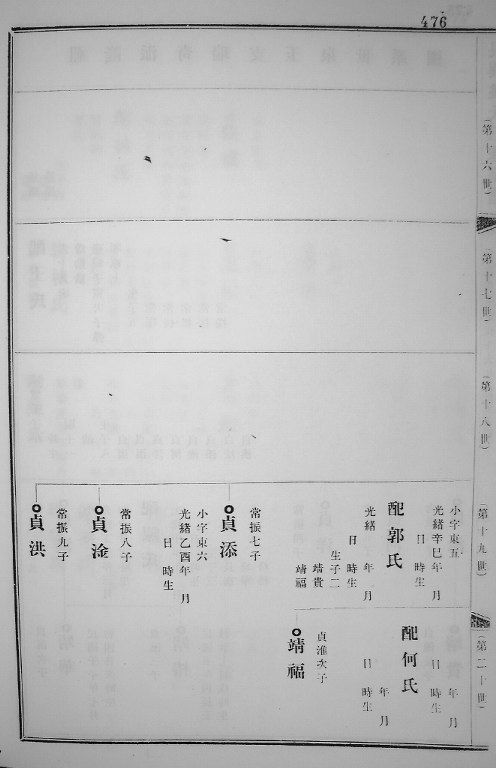 476
(第十六世)
(第十七世)
(第十八世)
(第十九世)
小字東五
光緒辛巳年 月
日 時生
配郭氏
光緒 年 月
日 時生
生子二
靖貴
靖福
貞添
常振七子
小字東六
光緒乙酉年 月
日 時生
貞淦
常振八子
貞洪
常振九子
(第二十世)
年 月
日 時生
配何氏
年 月
日 時生
靖福
貞淮次子